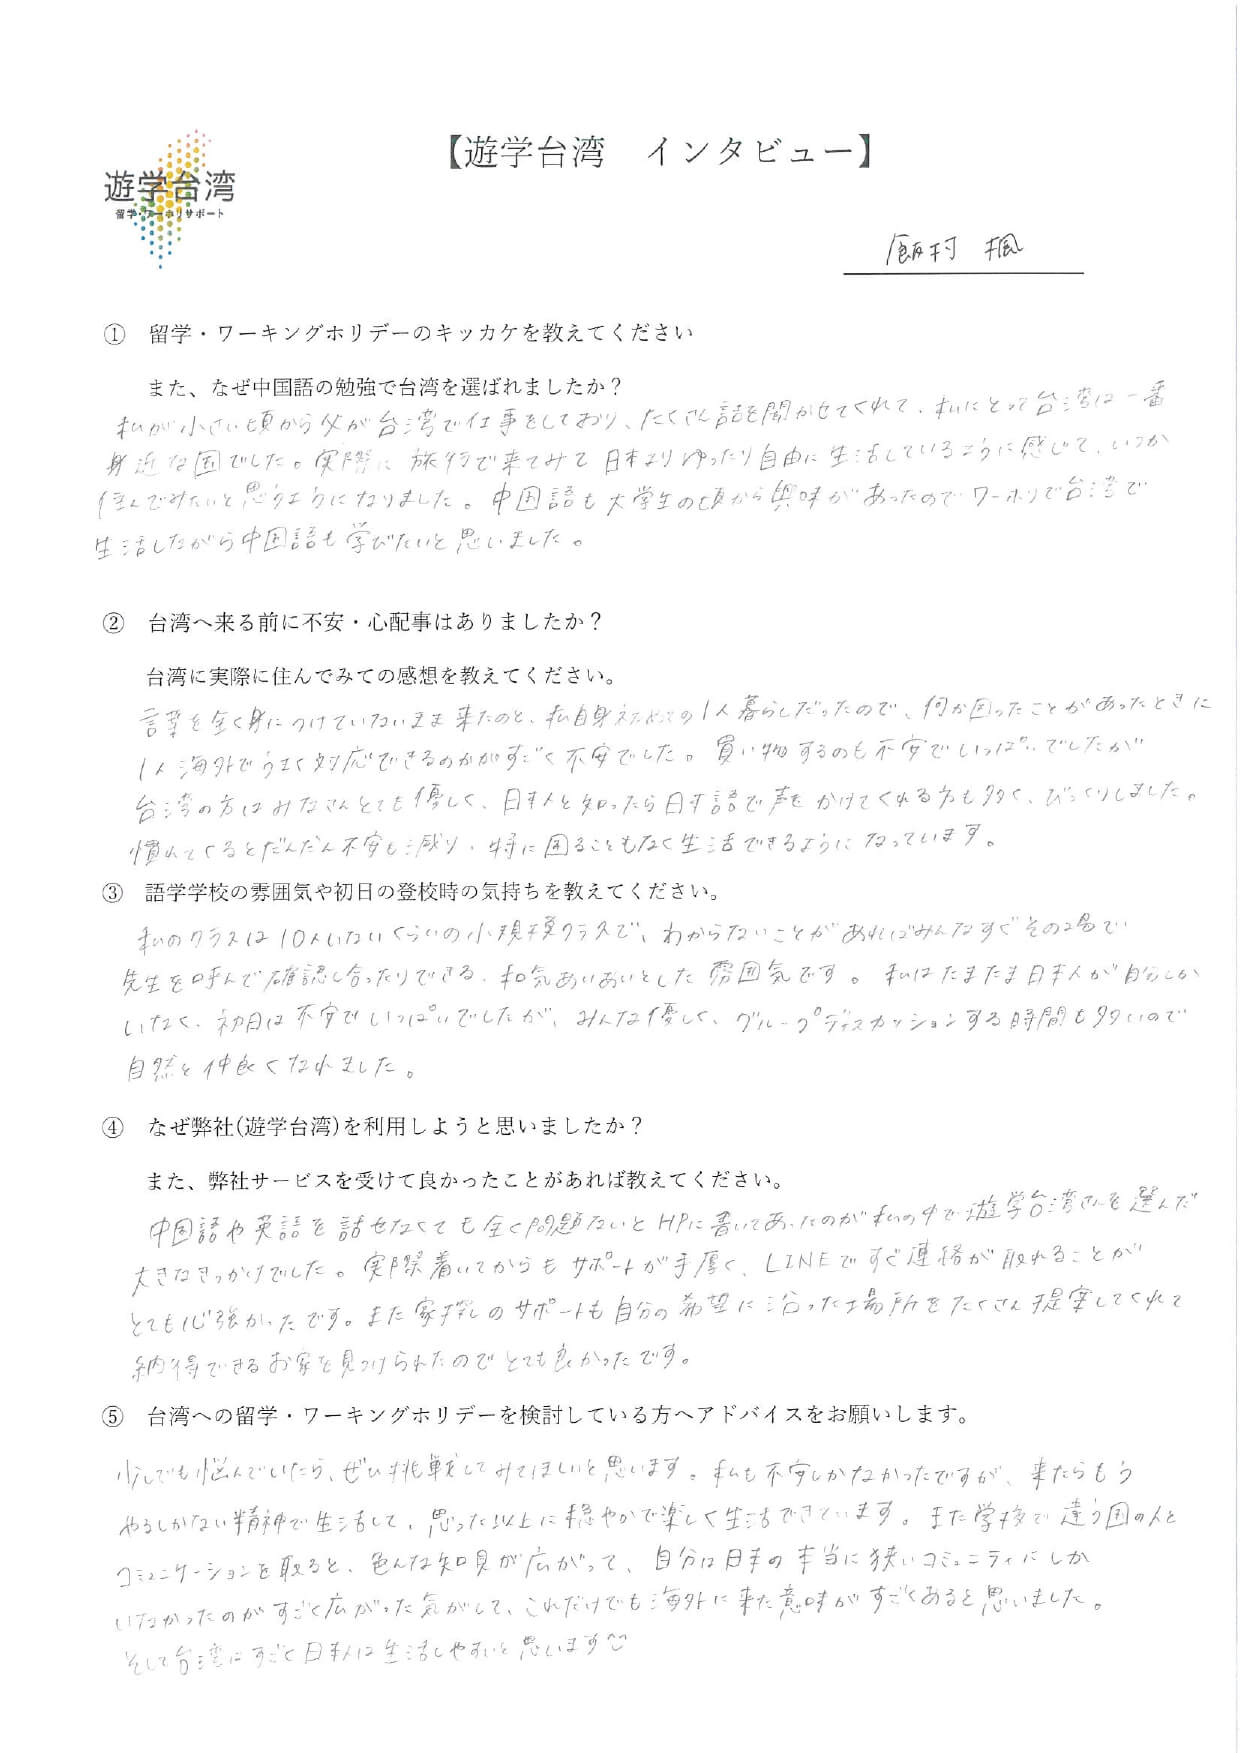 【遊学台湾　インタビュー】
遊学台湾
留学・ワーホリサポート
飯村 楓
① 留学・ワーキングホリデーのキッカケを教えてください
また、なぜ中国語の勉強で台湾を選ばれましたか？
私が小さい頃から父が台湾で仕事をしており、たくさん話を聞かせてくれて、私にとって台湾は一番
身近な国でした。実際に旅行で来てみて日本よりゆったり自由に生活しているように感じて、いつか
住んでみたいと思うようになりました。中国語も大学生の頃から興味があったのでワーホリで台湾で
生活しながら中国語も学びたいと思いました。
② 台湾へ来る前に不安・心配事はありましたか？
台湾に実際に住んでみての感想を教えてください。
言葉を全く身につけていないまま来たのと、私自身初めての1人暮らしだったので、何か困ったことがあったときに
1人海外でうまく対応できるのかがすごく不安でした。買い物するのも不安でいっぱいでしたが
台湾の方はみなさんとても優しく、日本人と知ったら日本語で声をかけてくれる方も多く、びっくりしました。
慣れてくるとだんだん不安も減り、特に困ることもなく生活できるようになっています。
③ 語学学校の雰囲気や初日の登校時の気持ちを教えてください。
私のクラスは10人いないくらいの小規模クラスで、わからないことがあればみんなすぐその場で
先生を呼んで確認し合ったりできる、和気あいあいとした雰囲気です。私はたまたま日本人が自分しか
いなく、初日は不安でいっぱいでしたが、みんな優しく、グループディスカッションする時間も多いので
自然と仲良くなれました。
④ なぜ弊社(遊学台湾)を利用しようと思いましたか？
また、弊社サービスを受けて良かったことがあれば教えてください。
中国語や英語を話せなくても全く問題ないとHPに書いてあったのが私の中で遊学台湾さんを選んだ
大きなきっかけでした。実際着いてからもサポートが手厚く、LINEですぐ連絡が取れることが
とても心強かったです。また家探しのサポートも自分の希望に沿った場所をたくさん提案してくれて
納得できるお家を見つけられたのでとても良かったです。
⑤ 台湾への留学・ワーキングホリデーを検討している方へアドバイスをお願いします。
少しでも悩んでいたら、ぜひ挑戦してみてほしいと思います。私も不安しかなかったですが、来たらもう
やるしかない精神で生活して、思った以上に穏やかで楽しく生活できています。また学校で違う国の人と
コミュニケーションを取ると、色んな知見が広がって、自分は日本の本当に狭いコミュニティにしか
いなかったのがすごく広がった気がして、これだけでも海外に来た意味がすごくあると思いました。
そして台湾はすごく日本人は生活しやすいと思います